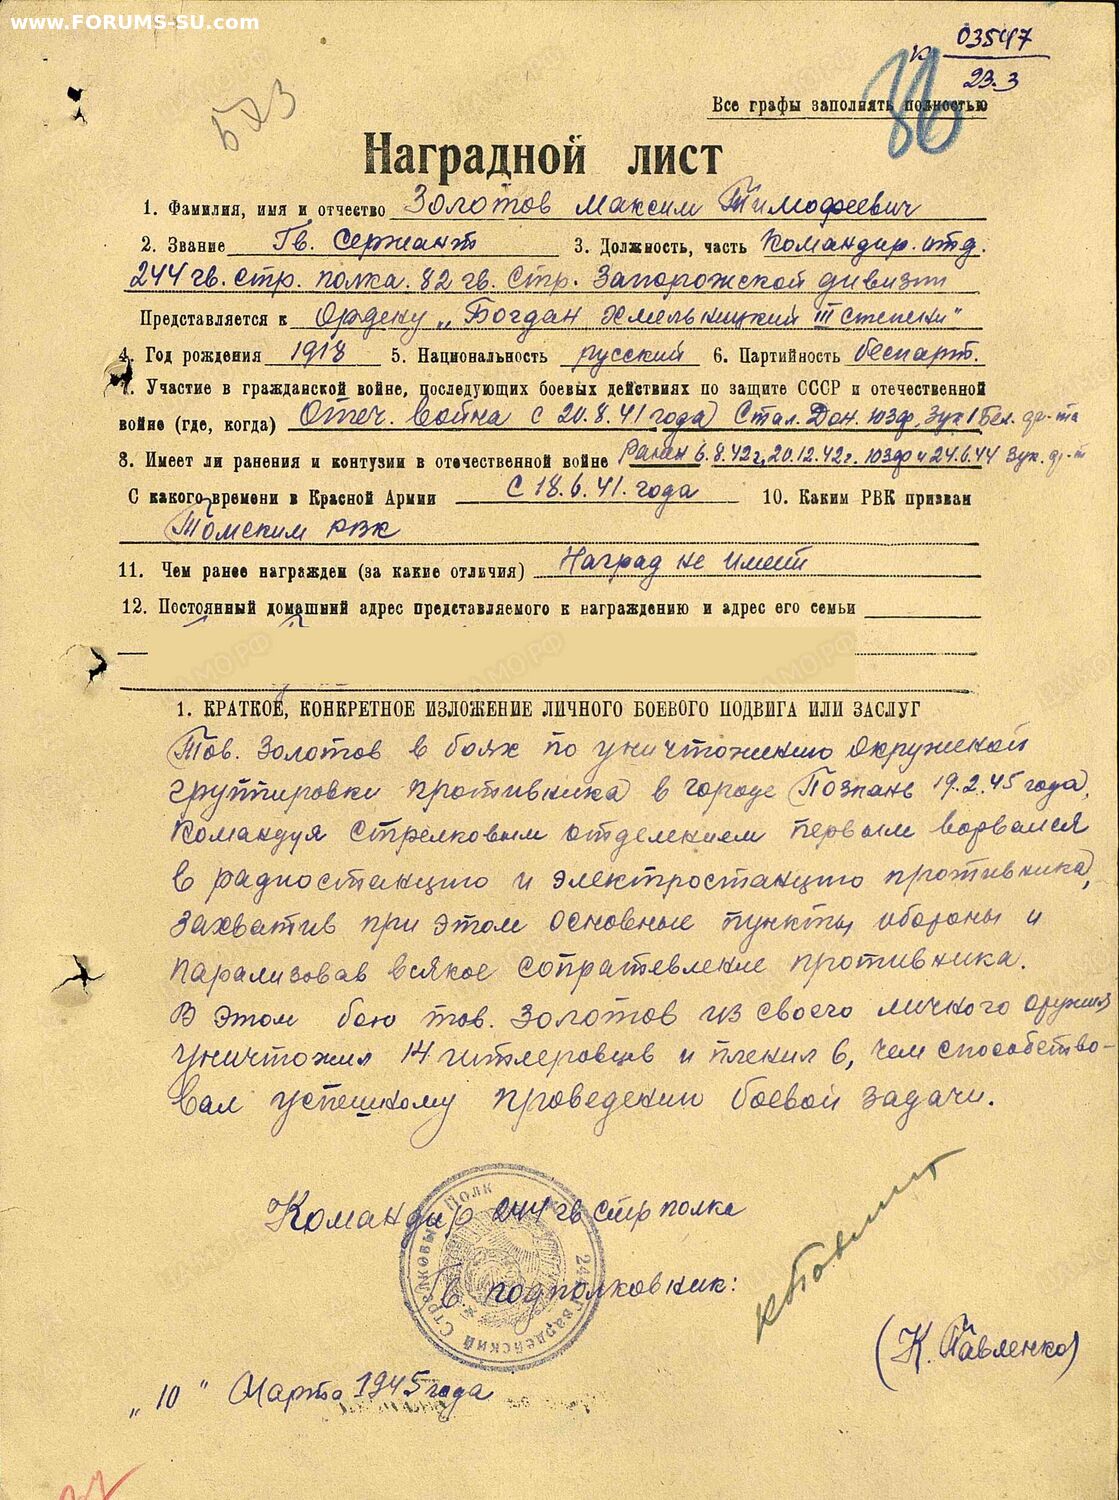 www.FORUMS-SU.com
к 03547
23.3
36
573
Все графы заполнять полностью
Наградной лист
1. Фамилия, имя и отчество Золотов Максим Тимофеевич
2. Звание Гв. Сержант 3. Должность, часть Командир. отд.
244 гв. стр. полка. 82 гв. Стр. Запорожской дивизии
Представляется к Ордену „Богдан Хмельницкий III степени"
4. Год рождения 1918 5. Национальность русский 6. Партийность беспарт.
7. Участие в гражданской войне, последующих боевых действиях по защите СССР и отечественной
войне (где, когда) Отеч. война с 20.8.41 года Стал. Дон. ЮЗф, 3ук 1 Бел. фр-та
8. Имеет ли ранения и контузии в отечественной войне Ранен 6.8.42г, 20.12.42г. ЮЗф и 24.6.44 3ук. фр-т
С какого времени в Красной Армии С 18.6.41. года 10. Каким РВК призван
Томским РВК
11. Чем ранее награжден (за какие отличия) Наград не имеет
12. Постоянный домашний адрес представляемого к награждению и адрес его семьи
1. КРАТКОЕ, КОНКРЕТНОЕ ИЗЛОЖЕНИЕ ЛИЧНОГО БОЕВОГО ПОДВИГА ИЛИ ЗАСЛУГ
Тов. Золотов в боях по уничтожению окруженой
группировки противника в городе Познань 19.2.45 года,
командуя стрелковым отделением первым ворвался
в радиостанцию и электростанцию противника,
захватив при этом основные пункты обороны и
парализовав всякое сопративление противника.
В этом бою тов. Золотов из своего личного оружия
уничтожил 14 гитлеровцев и пленил 6, чем способство-
вал успешному проведению боевой задачи.
Командир 244 гв стр полка
Гв. подполковник:
(К. Павленко)
„10" Марта 1945 года
244 Гвардейский Стрелковый Полк